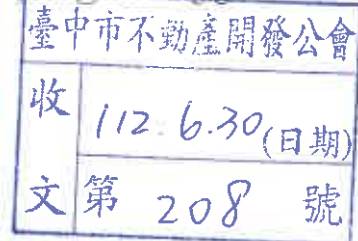 臺中市不動產開發公會
收 112.6.30(日期)
文 第 208 號